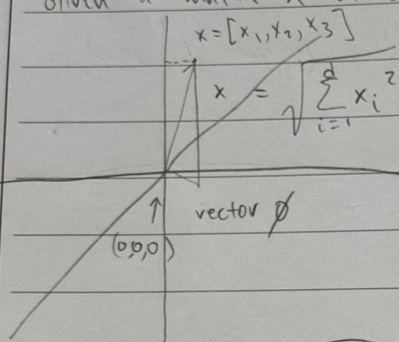 x = [x₁, x₂, x₃]
x = √ d Σ i=1 xᵢ²
vector ∅
(0,0,0)